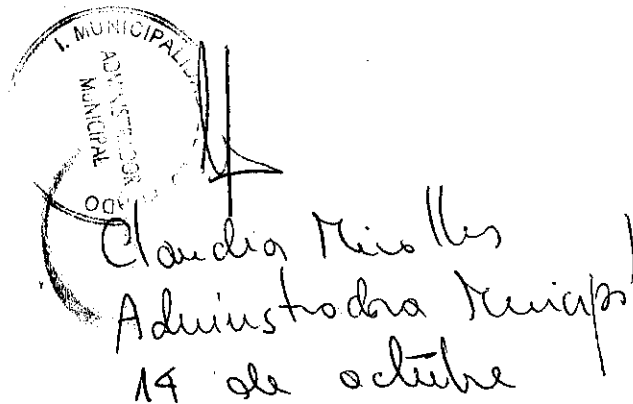 I. MUNICIPALIDAD
ADMINISTRADOR
MUNICIPAL
Claudia Miralles
Administradora Municipal
14 de octubre